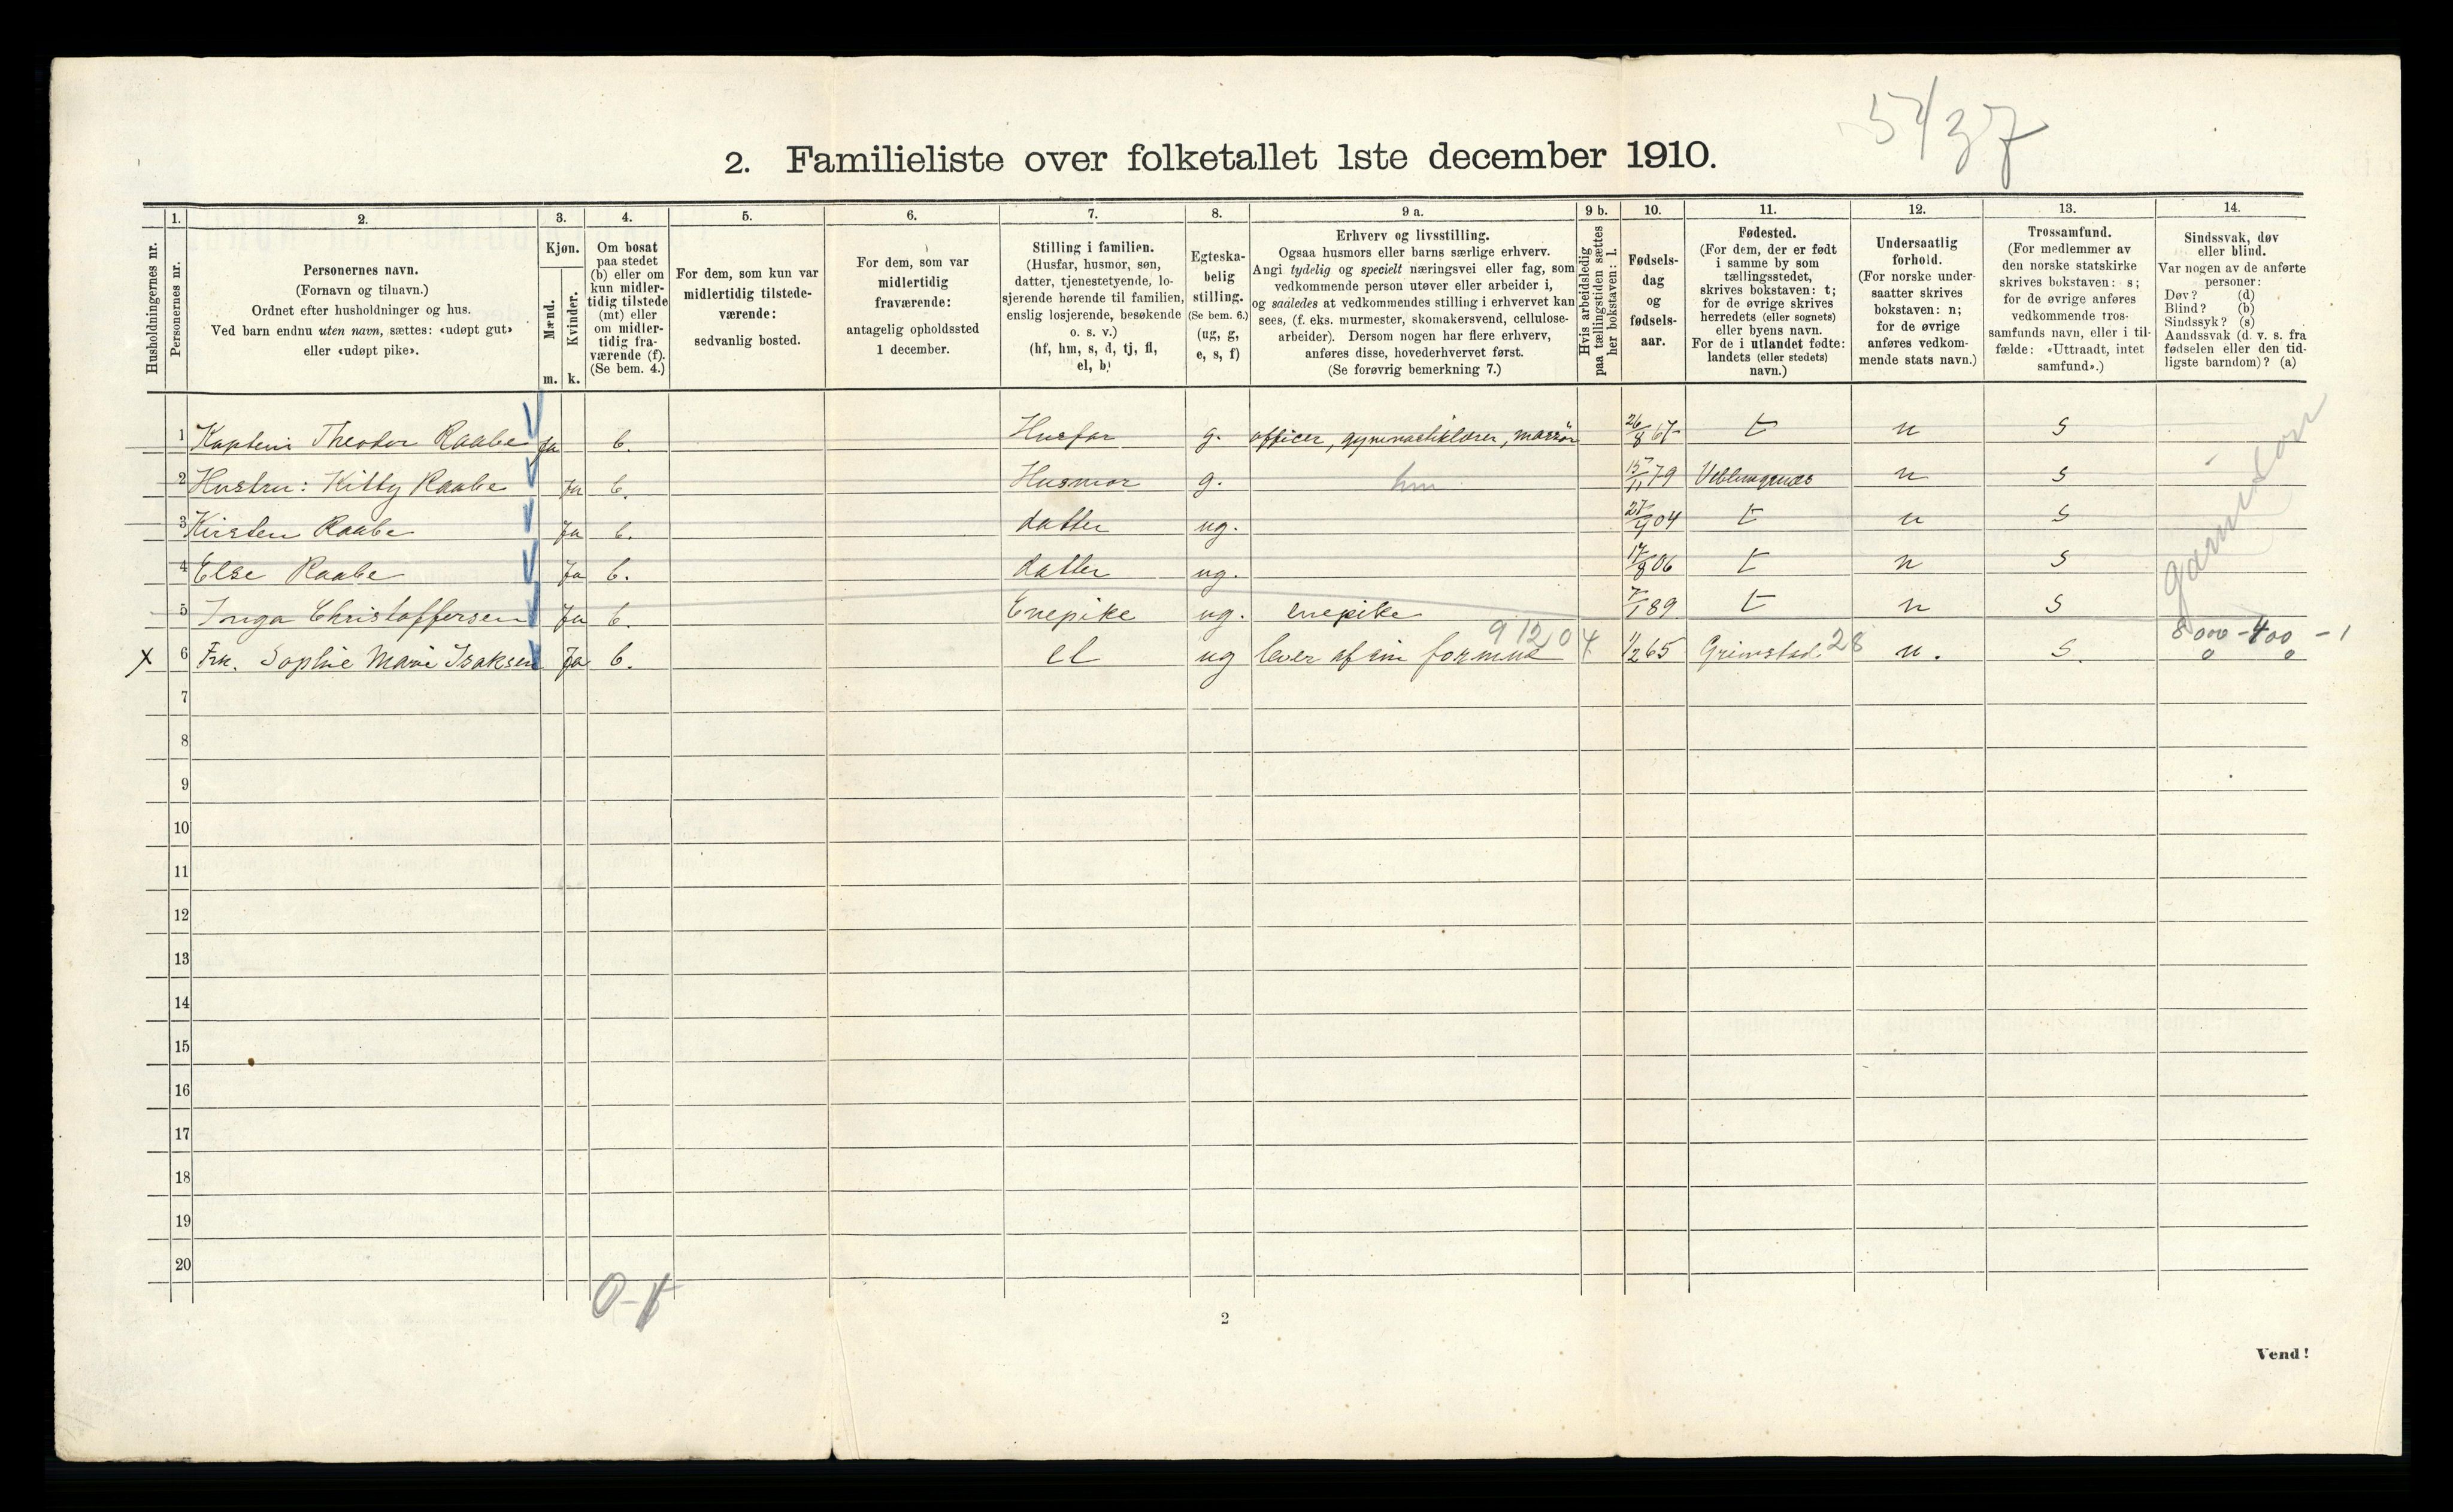 5/37
2. Familieliste over folketallet 1ste december 1910.
Husholdningernes nr.
1. Personernes nr.
2. Personernes navn.
(Fornavn og tilnavn.)
Ordnet efter husholdninger og hus.
Ved barn endnu uten navn, sættes: «udøpt gut»
eller «udøpt pike».
3. Kjøn.
Mænd. m.
Kvinder. k.
4. Om bosat
paa stedet
(b) eller om
kun midler-
tidig tilstede
(mt) eller
om midler-
tidig fra-
værende (f).
(Se bem. 4.)
5. For dem, som kun var
midlertidig tilstede-
værende:
sedvanlig bosted.
6. For dem, som var
midlertidig
fraværende:
antagelig opholdssted
1 december.
7. Stilling i familien.
(Husfar, husmor, søn,
datter, tjenestetyende, lo-
sjerende hørende til familien,
enslig losjerende, besøkende
o. s. v.)
(hf, hm, s, d, tj, fl,
el, b)
8. Egteska-
belig
stilling.
(Se bem. 6.)
(ug, g,
e, s, f)
9 a. Erhverv og livsstilling.
Ogsaa husmors eller barns særlige erhverv.
Angi tydelig og specielt næringsvei eller fag, som
vedkommende person utøver eller arbeider i,
og saaledes at vedkommendes stilling i erhvervet kan
sees, (f. eks. murmester, skomakersvend, cellulose-
arbeider). Dersom nogen har flere erhverv,
anføres disse, hovederhvervet først.
(Se forøvrig bemerkning 7.)
9 b. Hvis arbeidsledig
paa tællingstiden sættes
her bokstaven: l.
10. Fødsels-
dag
og
fødsels-
aar.
11. Fødested.
(For dem, der er født
i samme by som
tællingsstedet,
skrives bokstaven: t;
for de øvrige skrives
herredets (eller sognets)
eller byens navn.
For de i utlandet fødte:
landets (eller stedets)
navn.)
12. Undersaatlig
forhold.
(For norske under-
saatter skrives
bokstaven: n;
for de øvrige
anføres vedkom-
mende stats navn.)
13. Trossamfund.
(For medlemmer av
den norske statskirke
skrives bokstaven: s;
for de øvrige anføres
vedkommende tros-
samfunds navn, eller i til-
fælde: «Uttraadt, intet
samfund».)
14. Sindssvak, døv
eller blind.
Var nogen av de anførte
personer:
Døv? (d)
Blind? (b)
Sindssyk? (s)
Aandssvak (d. v. s. fra
fødselen eller den tid-
ligste barndom)? (a)
1 Kaptein Theodor Raabe Ja b. Husfar g. officer, gymnastiklærer, massör 26/8 67 t n s
2 Hustru: Kitty Raabe Ja b. Husmor g. hm 15/11 79 n s
3 Kirsten Raabe Ja b. datter ug. 04 t n s
4 Else Raabe Ja b. datter ug. 17/8 06 t n s
5 Inga Christoffersen Ja b. Enepike ug. enepike 7/1 89 t n s
91204
8000-400-1
X 6 Frk. Sophie Marie Isaksen Ja b. el ug lever af sin formue 1/2 65 Grimstad. 28 n. s. 0 0
7
8
9
10
11
12
13
14
15
16
17
18
19
20
2
Vend!